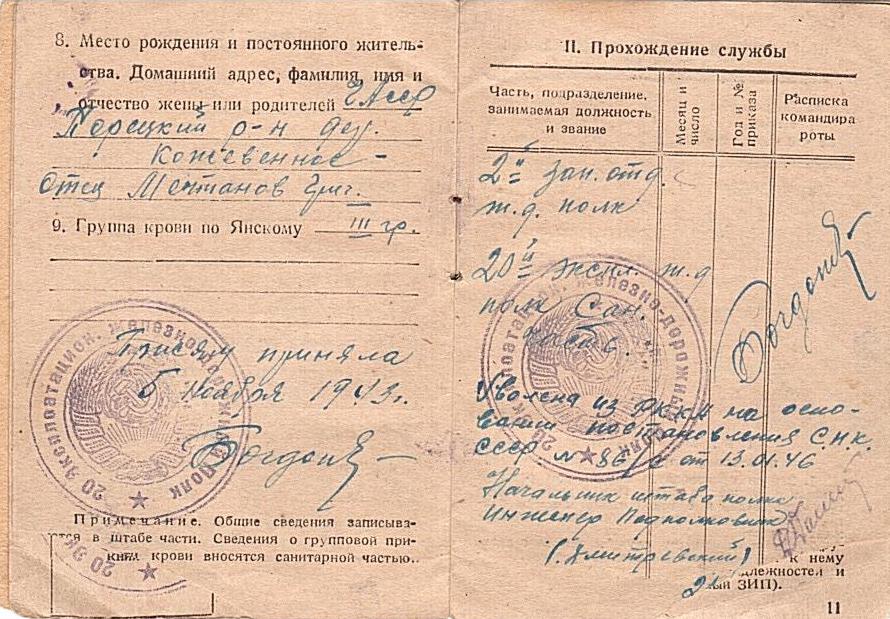 8. Место рождения и постоянного житель-
ства. Домашний адрес, фамилия, имя и
отчество жены или родителей ЧАССР
Порецкий р-н дер.
Кожевенное –
Отец Ментанов Григ.
9. Группа крови по Янскому III гр.
Присягу приняла
5 Ноября 1943 г.
20 эксплоатацион. железно-дорожный полк
Примечание. Общие сведения записыва-
тся в штабе части. Сведения о групповой при-
крови вносятся санитарной частью.
20 Эк
II. Прохождение службы
Часть, подразделение, занимаемая должность и звание
Месяц и число
Год и № приказа
Расписка командира роты
2й зап. отд.
ж.д. полк
20й экспл. ж.д
полк Сан.
часть.
20 эксплоатацион. железно-дорожный полк
Уволена из РККА на осно-
вании постановления С.Н.К.
СССР № от 13.01.46
Начальник штаба полка
Инженер Подполковник
(Дмитревский)
к нему
длежностей и
ый ЗИП).
11